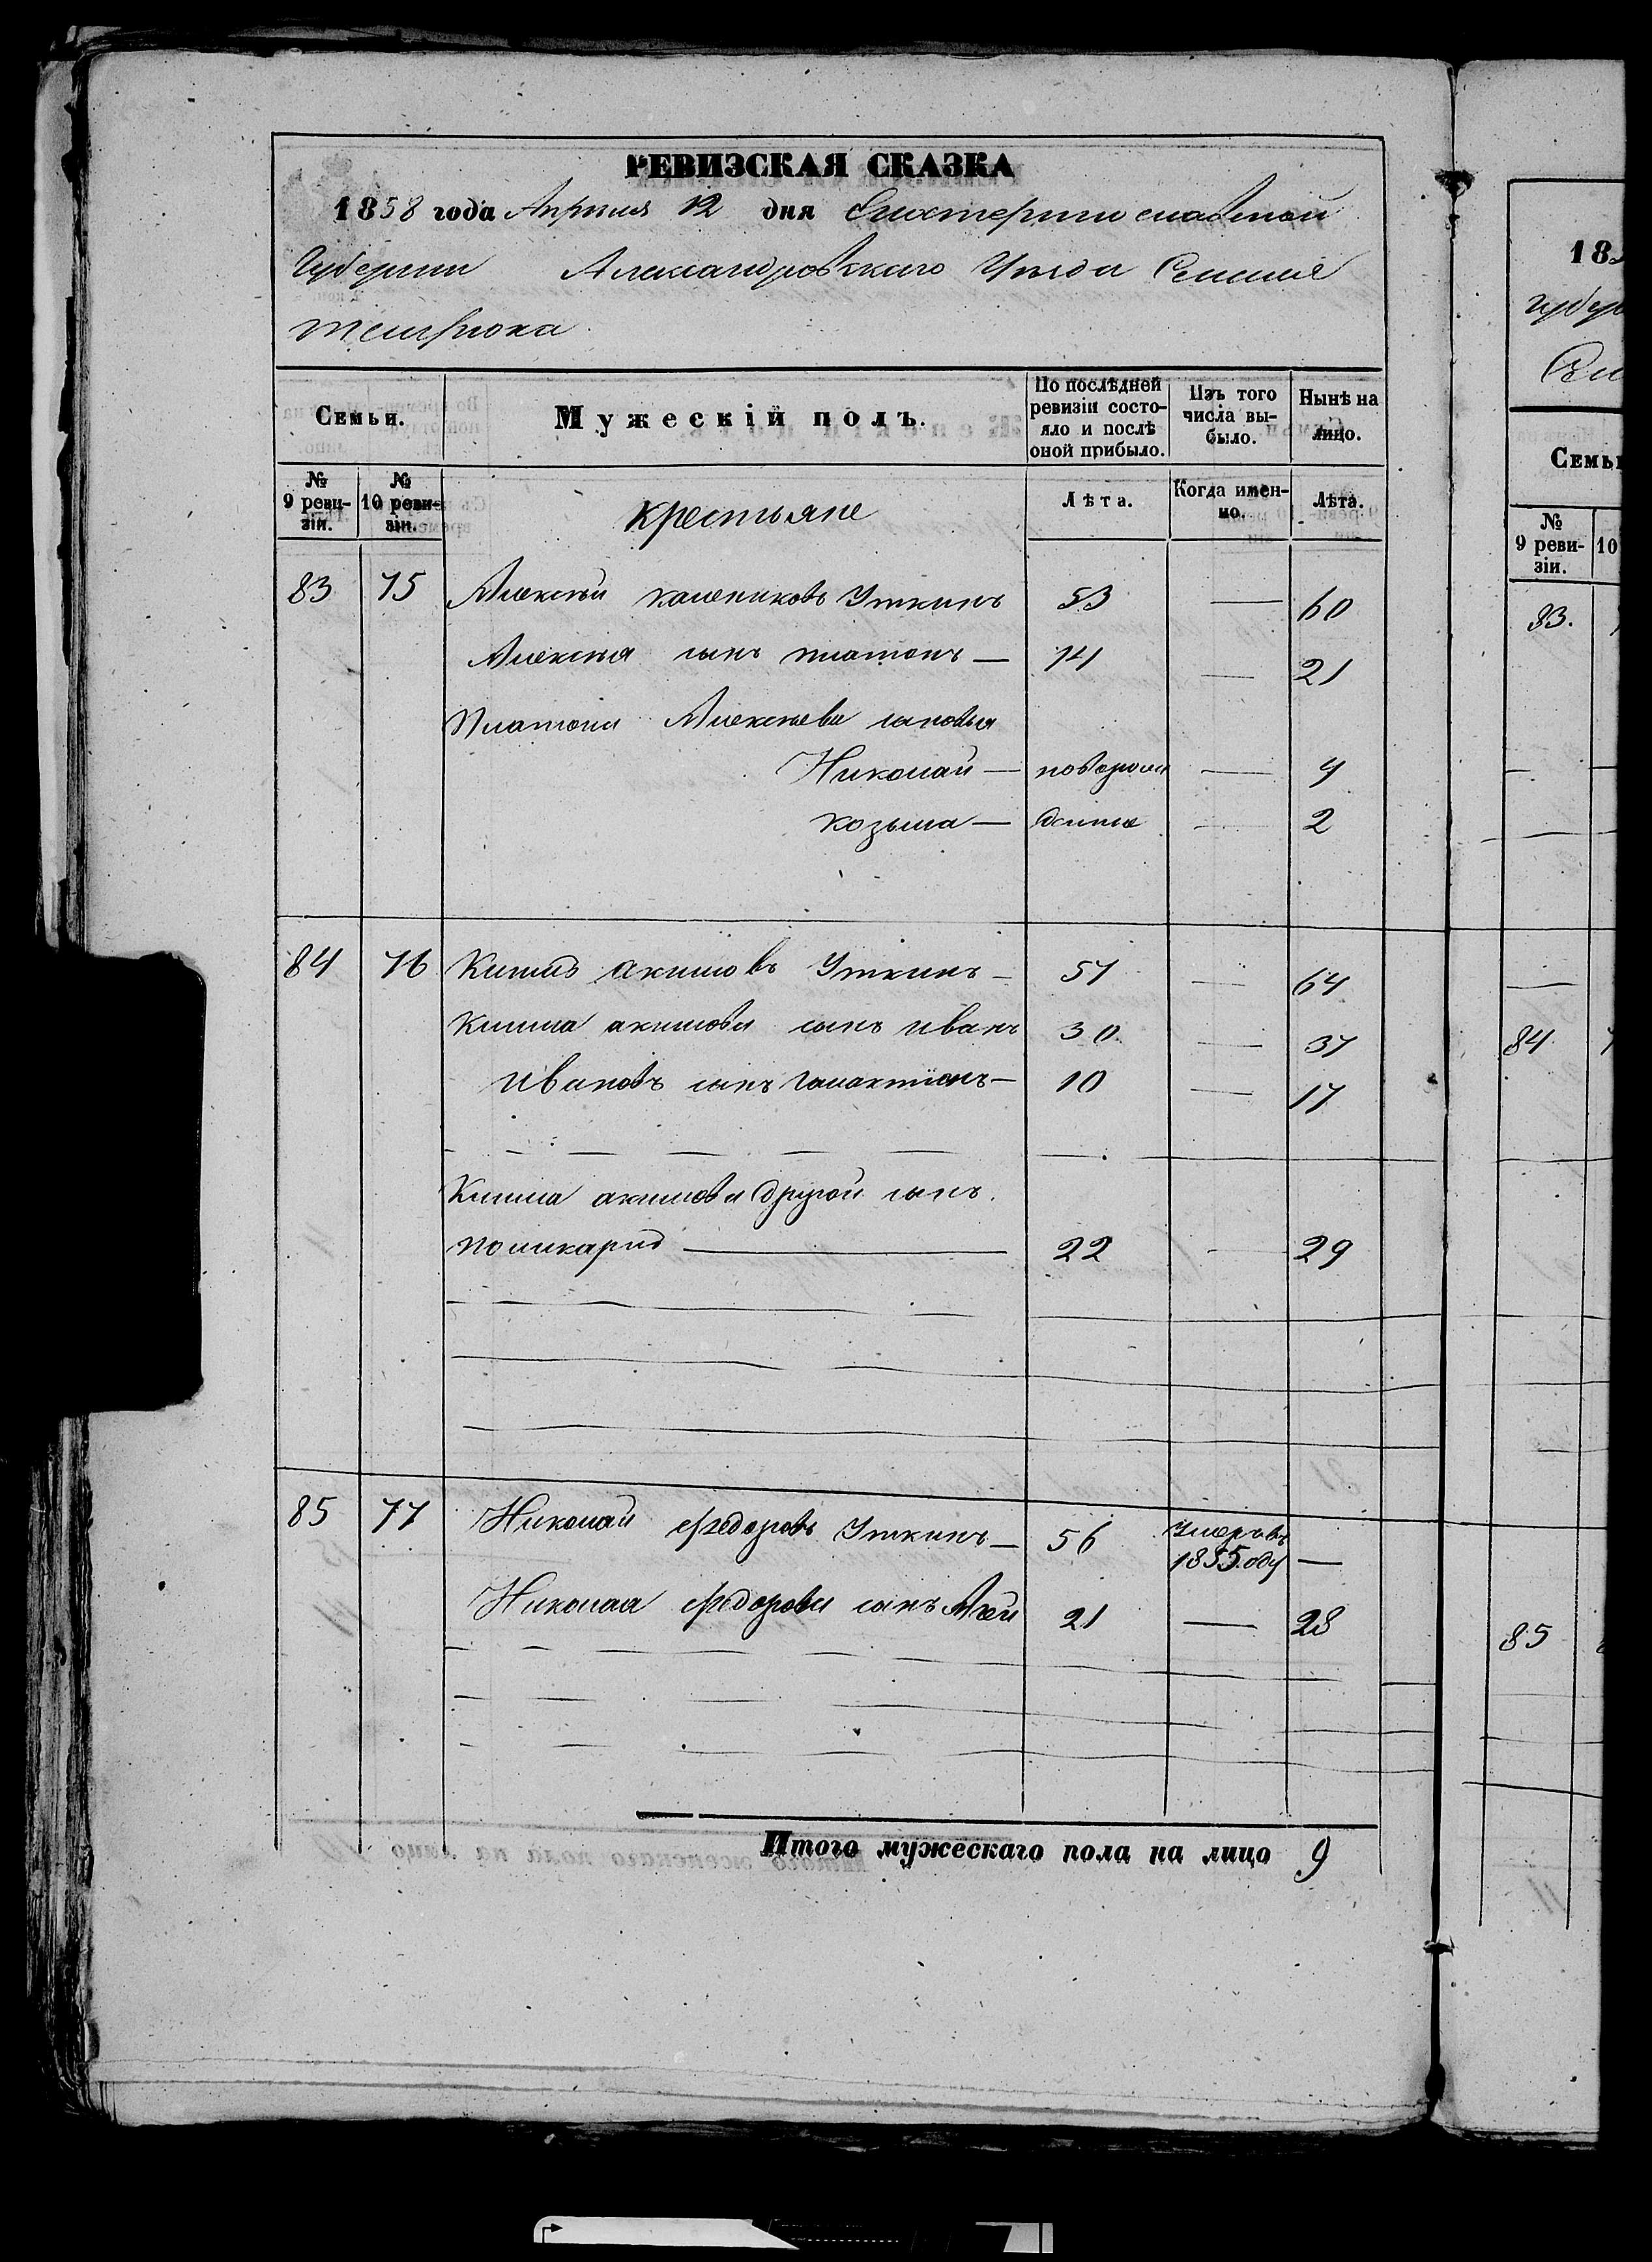 РЕВИЗСКАЯ СКАЗКА
1858 года Апреля 12 дня Екатеринославской
Губернии Александровскаго Уезда Селеніе
Темрюка
Семьи. Мужескій полъ. По послѣдней ревизіи состояло и послѣ оной прибыло. Изъ того числа выбыло. Нынѣ на лицо.
№ 9 ревизіи. № 10 ревизіи. крестьяне Лѣта. Когда именно. Лѣта.
83 75 Алексѣй калениковъ Уткинъ 53 — 60
Алексѣя сынъ платонъ — 14 — 21
Платона Алексѣева сыновья
Николай — новорож — 4
козьма — денные — 2
84 76 Климъ акимовъ Уткинъ — 57 — 64
Клима акимова сынъ иванъ 30 — 37
ивановъ сынъ галактионъ — 10 — 17
Клима акимова другой сынъ
поликарпъ — 22 - 29
85 77 Николай федоровъ Уткинъ — 56 Умеръ въ 1855 году —
Николая федорова сынъ 21 — 28
Итого мужескаго пола на лицо 9
18
губер
Семьи
№ 9 ревизіи. 10
83.
84
85